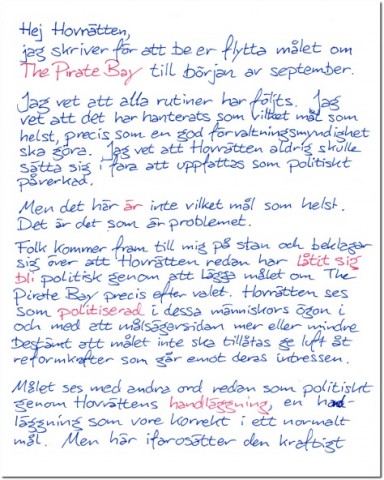 Hej Hovrätten,
jag skriver för att be er flytta målet om
The Pirate Bay till början av september.
Jag vet att alla rutiner har följts. Jag
vet att det har hanterats som vilket mål som
helst, precis som en god förvaltningsmyndighet
ska göra. Jag vet att Hovrätten aldrig skulle
sätta sig i fara att uppfattas som politiskt
påverkad.
Men det här är inte vilket mål som helst.
Det är det som är problemet.
Folk kommer fram till mig på stan och beklagar
sig över att Hovrätten redan har låtit sig
bli politisk genom att lägga målet om The
Pirate Bay precis efter valet. Hovrätten ses
som politiserad i dessa människors ögon i
och med att målsägarsidan mer eller mindre
bestämt att målet inte ska tillåtas ge luft åt
reformkrafter som går emot deras intressen.
Målet ses med andra ord redan som politiskt
genom Hovrättens handläggning, en hand-
läggning som vore korrekt i ett normalt
mål. Men här ifarosätter den kraftigt